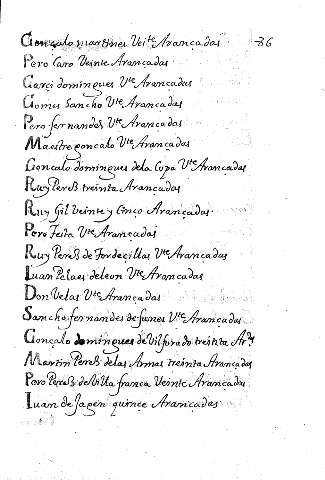 Gonçalo martines Veite Arançadas 86
Pero Caro Veinte Arançadas
Garçi domingues Vte Arançadas
Gomes Sancho Vte Arançadas
Pero fernandes Vte Arançadas
Maestre gonçalo Vte Arançadas
Goncalo domingues dela Copa Vte Arançadas
Ruy Peres treinta Arançadas
Ruy Gil Veinte y Cinco Arançadas
Pero Vte Arançadas
Ruy Peres de Tordecillas Vte Arançadas
Iuan Pelaes deleon Vte Arançadas
Don Velas Vte Arançadas
Sancho fernandes de funes Vte Arançadas
Gonçalo domingues de Vilforado treinta
Martin Peres de las Armas treinta Arançadas
Pero Peres de Villa franca Veinte Arançadas
Iuan de Jaen quince Arançadas